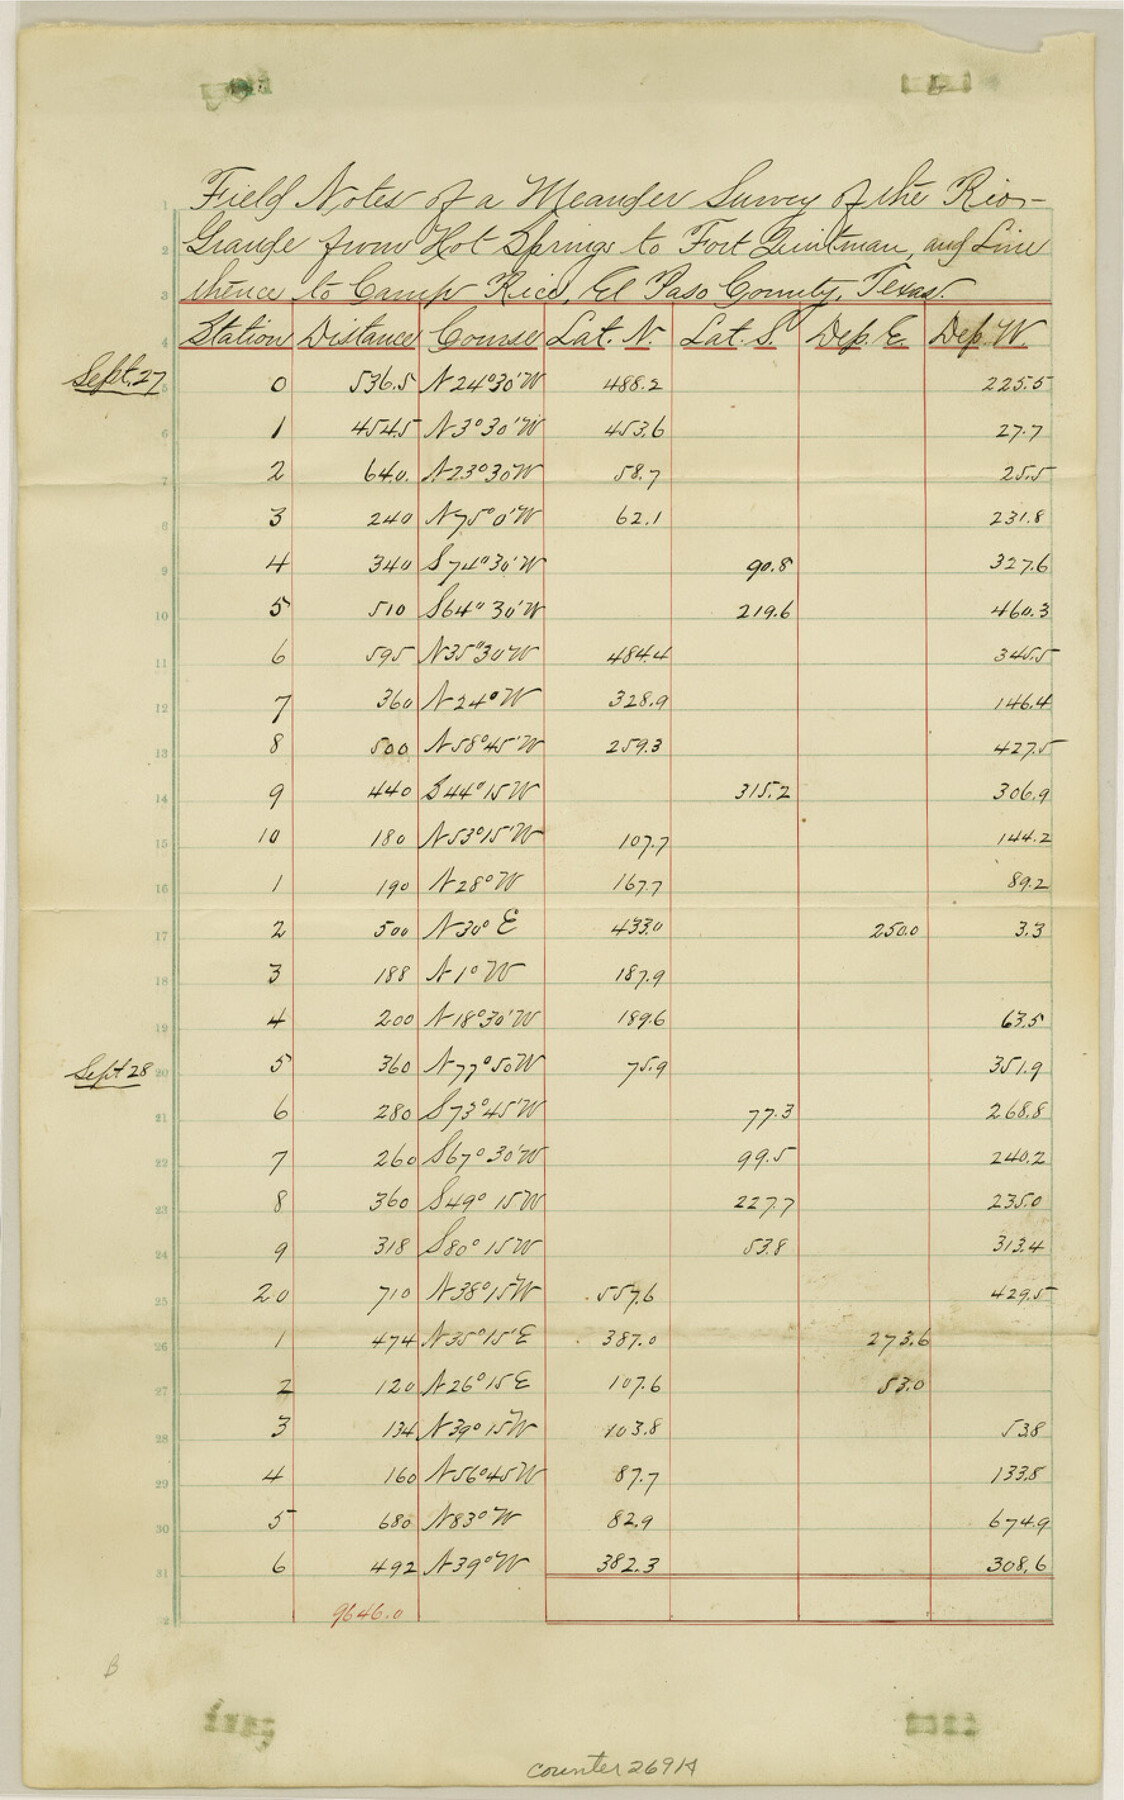 Field Notes of a Meander Survey of the Rio-
Grande from Hot Springs to Fort Quitman, and Line
thence to Camp Rice, El Paso County, Texas.
Station Distance Course Lat. N. Lat. S. Dep. E. Dep. W.
Sept. 27 0 536.5 N24°30'W 488.2 225.5
1 454.5 N3°30'W 453.6 27.7
2 640. N23°30W 58.7 25.5
3 240 N75°0'W 62.1 231.8
4 340 S74°30'W 90.8 327.6
5 510 S64°30'W 219.6 460.3
6 595 N35°30W 484.4 345.5
7 360 N24°W 328.9 146.4
8 500 N58°45'W 259.3 427.5
9 440 S44°15W 315.2 306.9
10 180 N53°15'W 107.7 144.2
1 190 N28°W 167.7 89.2
2 500 N30°E 433.0 250.0 3.3
3 188 N1°W 187.9
4 200 N18°30'W 189.6 63.5
Sept 28 5 360 N77°50W 75.9 351.9
6 280 S73°45'W 77.3 268.8
7 260 S67°30'W 99.5 240.2
8 360 S49°15W 227.7 235.0
9 318 S80°15W 53.8 313.4
20 710 N38°15'W 557.6 429.5
1 474 N35°15'E 387.0 273.6
2 120 N26°15E 107.6 53.0
3 134 N39°15W 103.8 53.8
4 160 N56°45W 87.7 133.8
5 680 N83°W 82.9 674.9
6 492 N39°W 382.3 308.6
9646.0
B
counter 26914
1
2
3
4
5
6
7
8
9
10
11
12
13
14
15
16
17
18
19
20
21
22
23
24
25
26
27
28
29
30
31